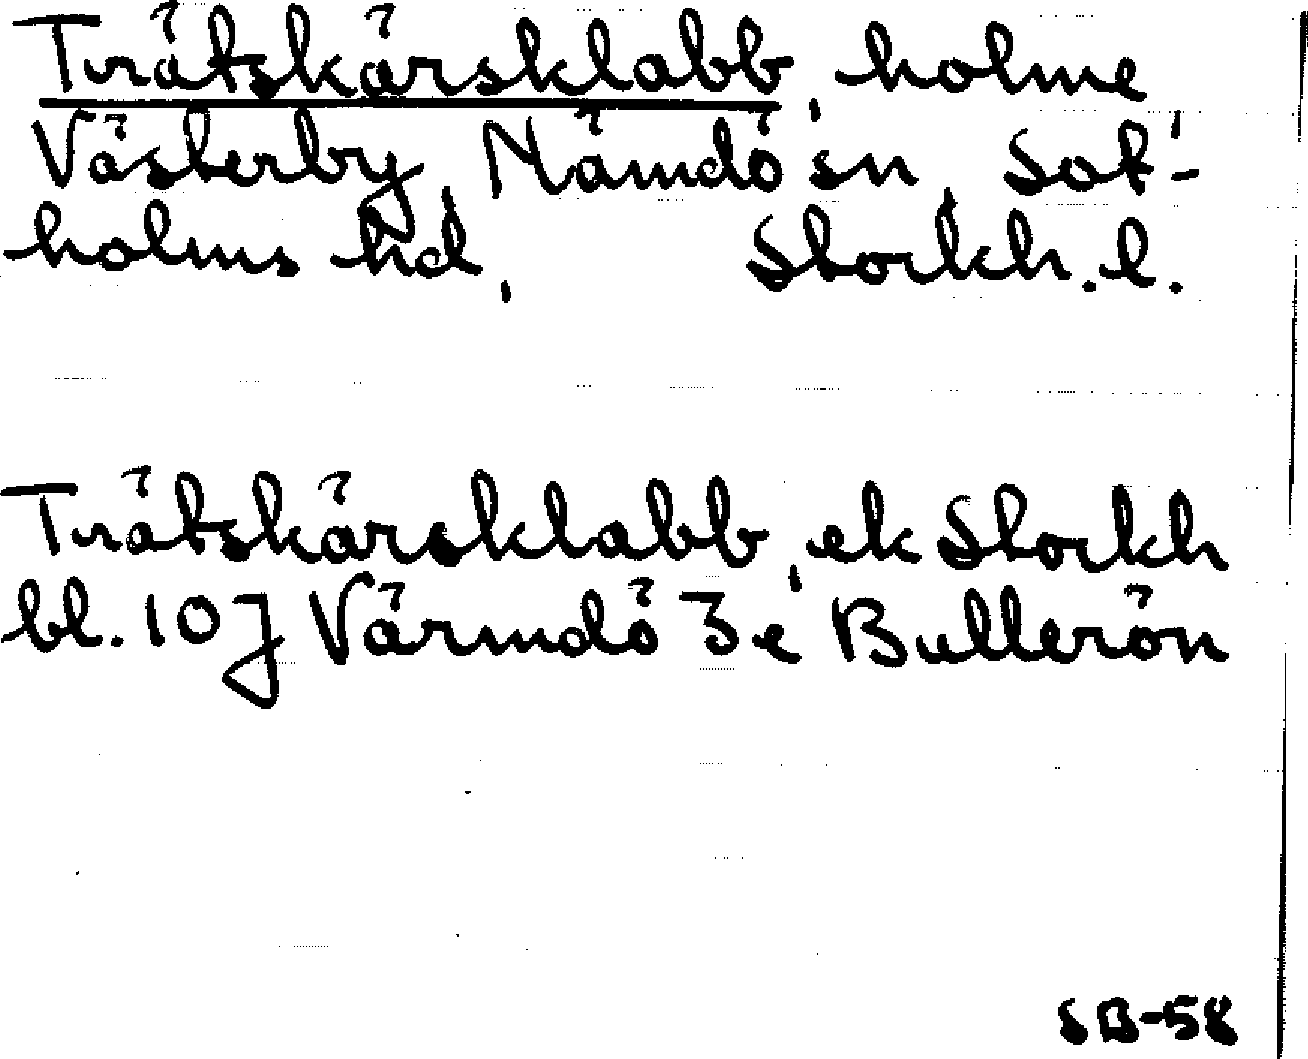 Trätskärsklabb, holme
Västerby, Nämdö sn, Sot-
holms hd, Stockh. l.
Trätskärsklabb, ek Stockh
bl. 10 J Värmdö 3 e Bullerön
SB-58